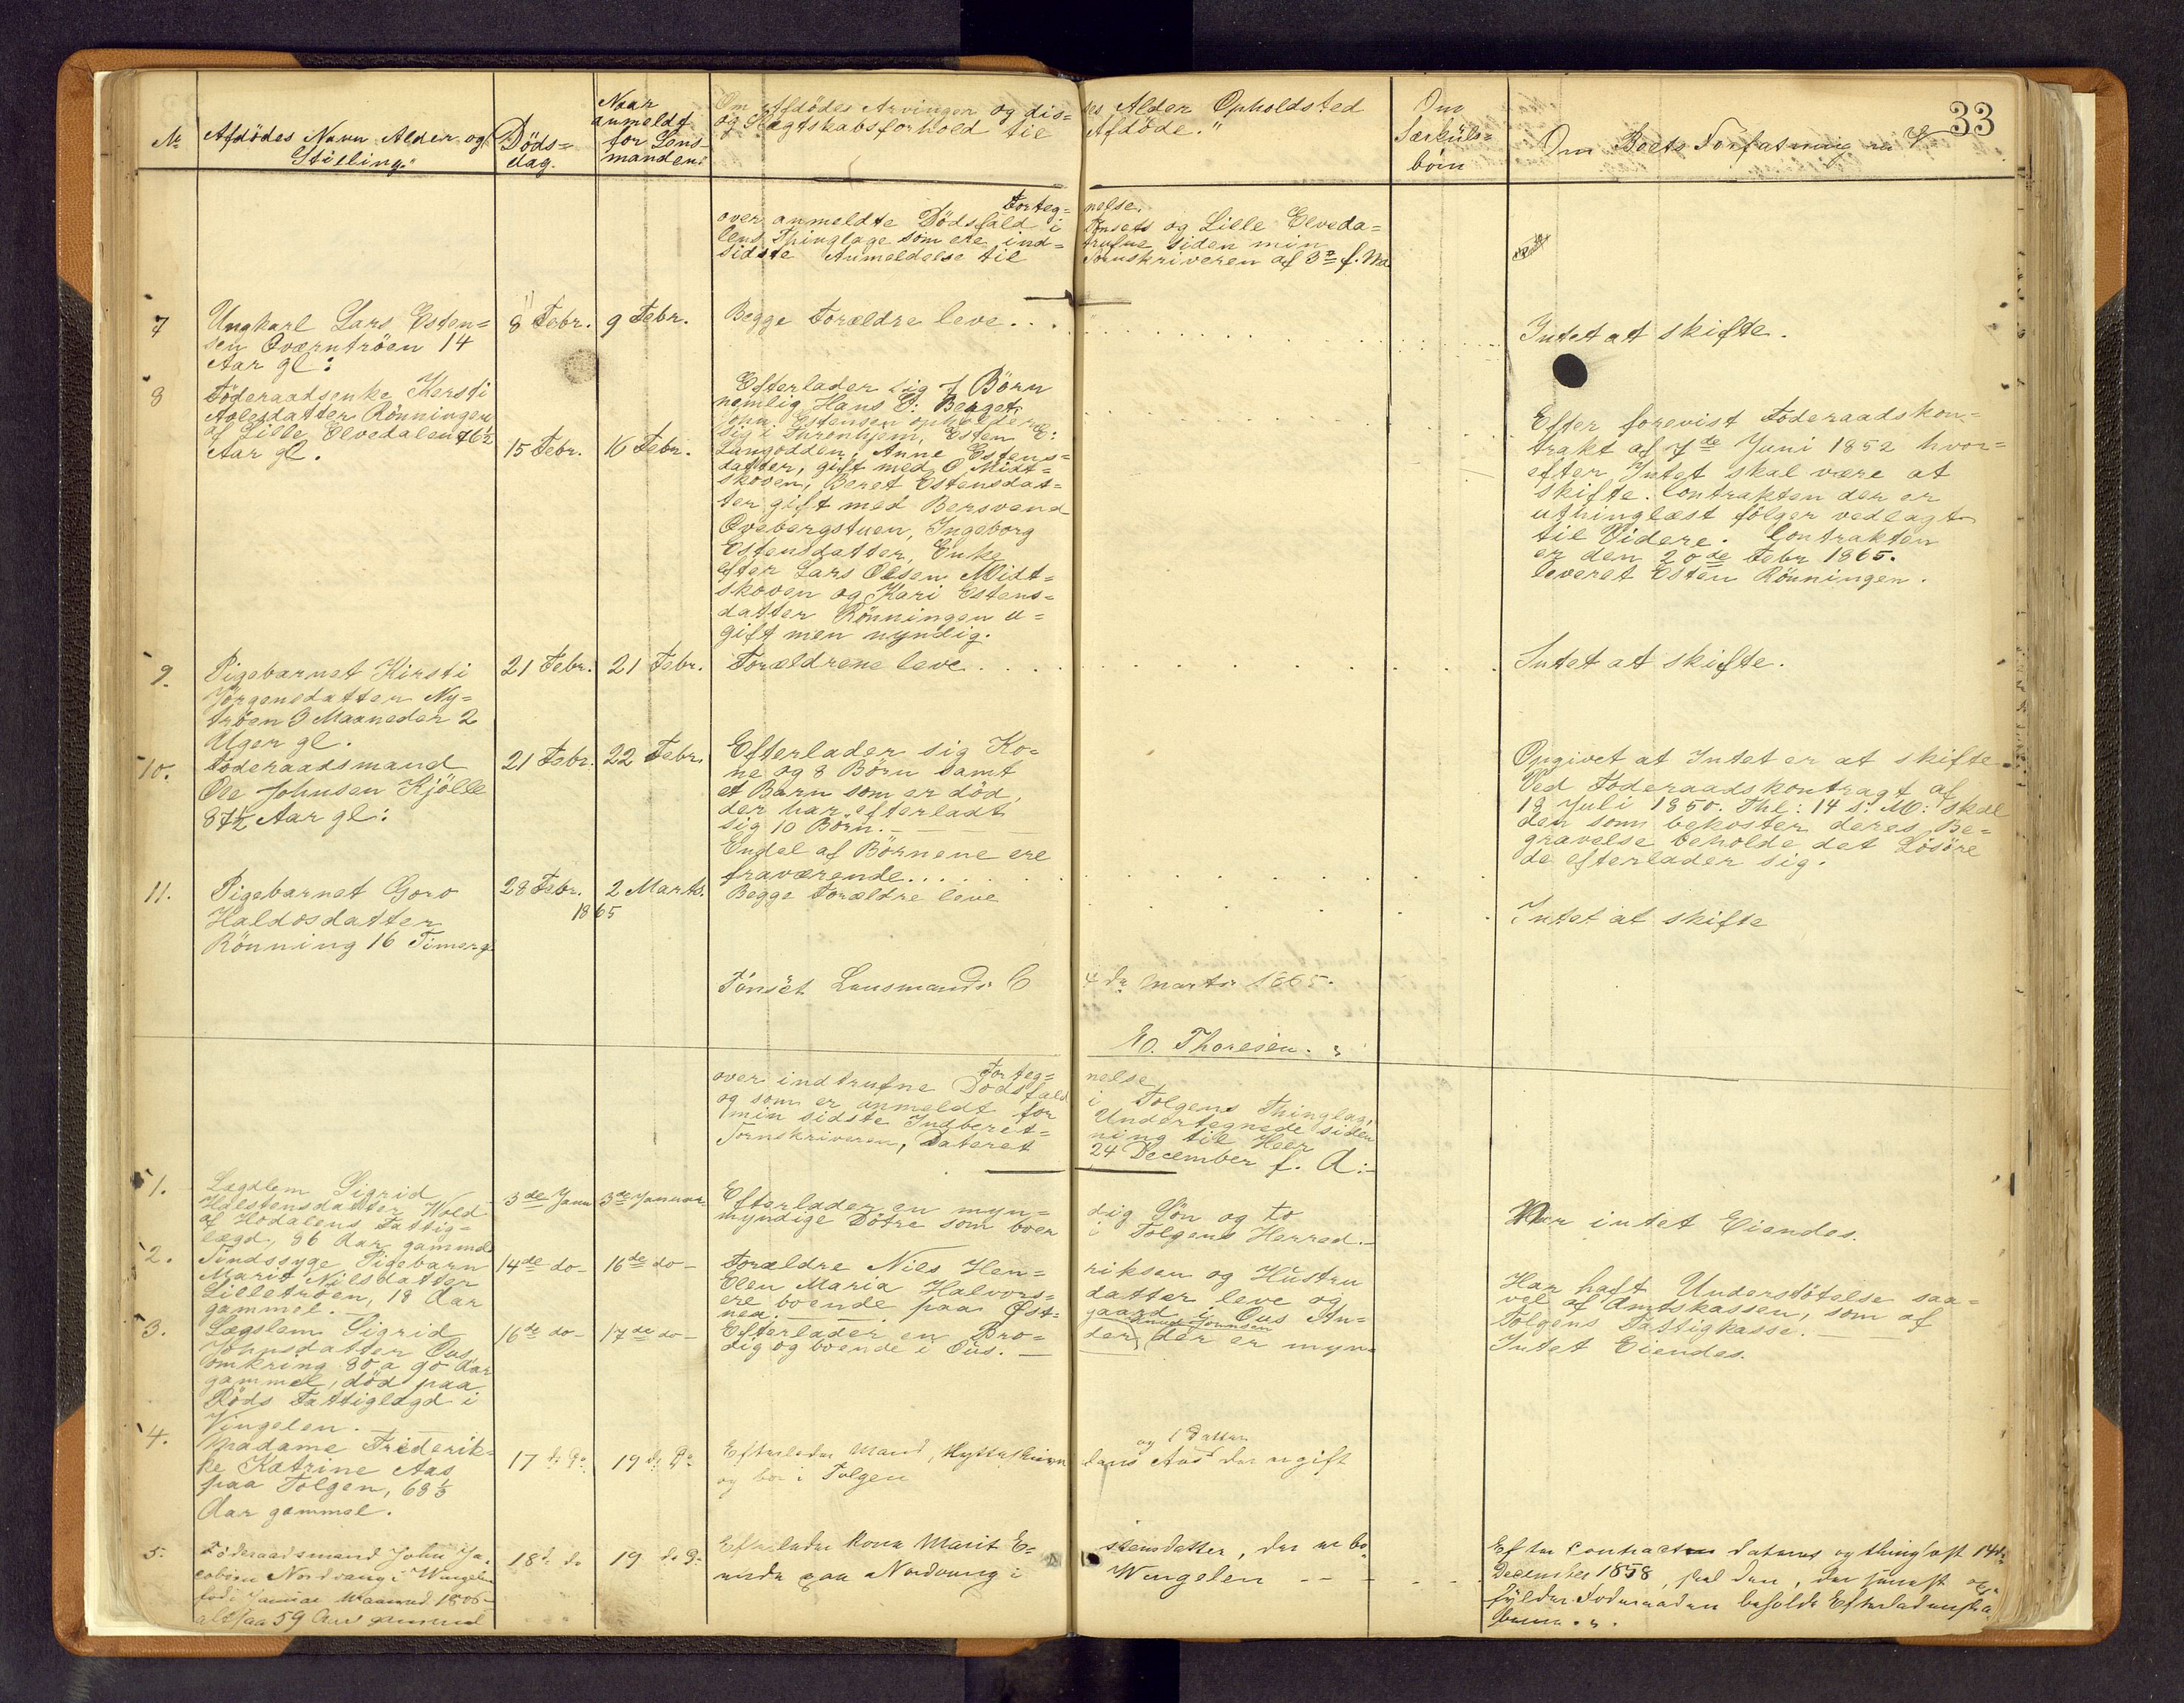 33
No
Afdödes Navn Alder og
Stilling."
Döds=
dag.
Naar
anmeldt
for Lens-
manden.
Om Afdödes Arvinger og dis= ses Alder Opholdsted
og Slægtskabsforhold til Afdöde."
Om
Særkuls=
börn
Om Boets Forfatning m V
Forteg= nelse.
over anmeldte Dödsfald i Tönsets og Lille Elveda=
lens Thinglage som ere ind= trufne siden min
sidste Anmeldelse til Sornskriveren af 3de f. Md.
7 Ungkarl Lars Esten=
sen Qværntröen 14
Aar gl:
8 Febr. 9 Febr. Begge Forældre leve . . .
Intet at skifte.
8 Föderaadsenke Kersti
Aolesdatter Rönningen
af Lille Elvedalen 76½
Aar gl.
15 Febr. 16 Febr.
Efterlader sig 7 Börn
nemlig Hans E: Berget,
John Estensen opholder
sig i Thronhjem, Esten E:
Langodden, Anne Estens=
datter, gift med O Midt=
skoven, Beret Estensdat=
ter gift med Bersvend
Qvebergstuen, Ingeborg
Estensdatter, Enke
efter Lars Olsen Midt=
skoven og Kari Estens=
datter Rönningen u=
gift men myndig.
Efter forevist Föderaadskon=
trakt af 7de Juni 1852 hvor=
efter Intet skal være at
skifte. Contrakten der er
uthinglæst fölger vedlagt
til Videre. Contrakten
er den 20de Febr 1865.
leveret Esten Rönningen.
9. Pigebarnet Kirsti
Jörgensdatter Ny=
tröen 3 Maaneder 2
Uger gl.
21 Febr. 21 Febr. Forældrene leve . . .
Intet at skifte.
10. Föderaadsmand
Ole Johnsen Kjölle
87½ Aar gl:
21 Febr. 22 Febr.
Efterlader sig Ko=
ne og 8 Börn samt
et Barn som er död,
der har efterladt
sig 10 Börn. —
Endel af Börnene ere
fraværende. . .
Opgivet at Intet er at skifte
Ved Föderaadskontragt af
18 Juli 1850. Thl: 14 s. M: skal
den som bekoster deres Be=
gravelse beholde det Lösöre
de efterlader sig.
11. Pigebarnet Goro
Haldosdatter
Rönning 16 Timer gl
28 Febr. 2 Marts.
1865
Begge Forældre leve
Intet at skifte
Tönsèt Lensmands C 4de Marts 1865.
E. Thoresen.
Forteg= nelse
over indtrufne Dödsfald i Tolgens Thinglag,
og som er anmeldt for Undertegnede siden
min sidste Indberet= ning til Herr
Sornskriveren, Dateret 24 December f. A:
1. Lægslem Sigrid
Halstensdatter Wold
af Hodalens Fattig=
lægd, 86 Aar gammel
3de Janu 3de Januar
Efterlader en myn= dig Sön og to
myndige Dötre som boer i Tolgens Herred.
Var intet Eiendes.
2. Sindssyge Pigebarn
Marit Nilsdatter
Lilletröen, 18 Aar
gammel. —
14de do— 16de do—
Forældre Niels Hen= riksen og Hustru
Elen Maria Halvors= datter leve og
ere boende paa Øst= gaard i Ous An=
nex.
Har haft Understötelse saa=
vel af Amtskassen, som af
Tolgens Fattigkasse. —
3. Lægslem Sigrid
Johnsdatter Ous,
omkring 80 a 90 Aar
gammel, död paa
Röds Fattiglægd i
Vingelen. —
16de do— 17de do—
Knud Jonnsen
Efterlader en Bro= der, der er myn=
dig og boende i Ous. —
Intet Eiendes.
4. Madame Friderik=
ke Katrine Aas
paa Tolgen, 68⅓
Aar gammel.
17 de Do 19 de Do
og 1 Datter
Efterlader Mand, Hytteskriver
og bor i Tolgen
Aas der er gift
5. Föderaadsmand John Ja=
cobsen Nordvang i Wingelen
föd i Januar Maaned 1806
altsaa 59 Aar gammel
18de do 19 de Do
Efterlader Kone Marit E= stensdatter, der er bo
ende paa Nordvang i Wingelen — —
Efter Contracten dateret og thinglæst 14de
December 1858, skal den, der
fylder Föderaaden beholde Efterladenska